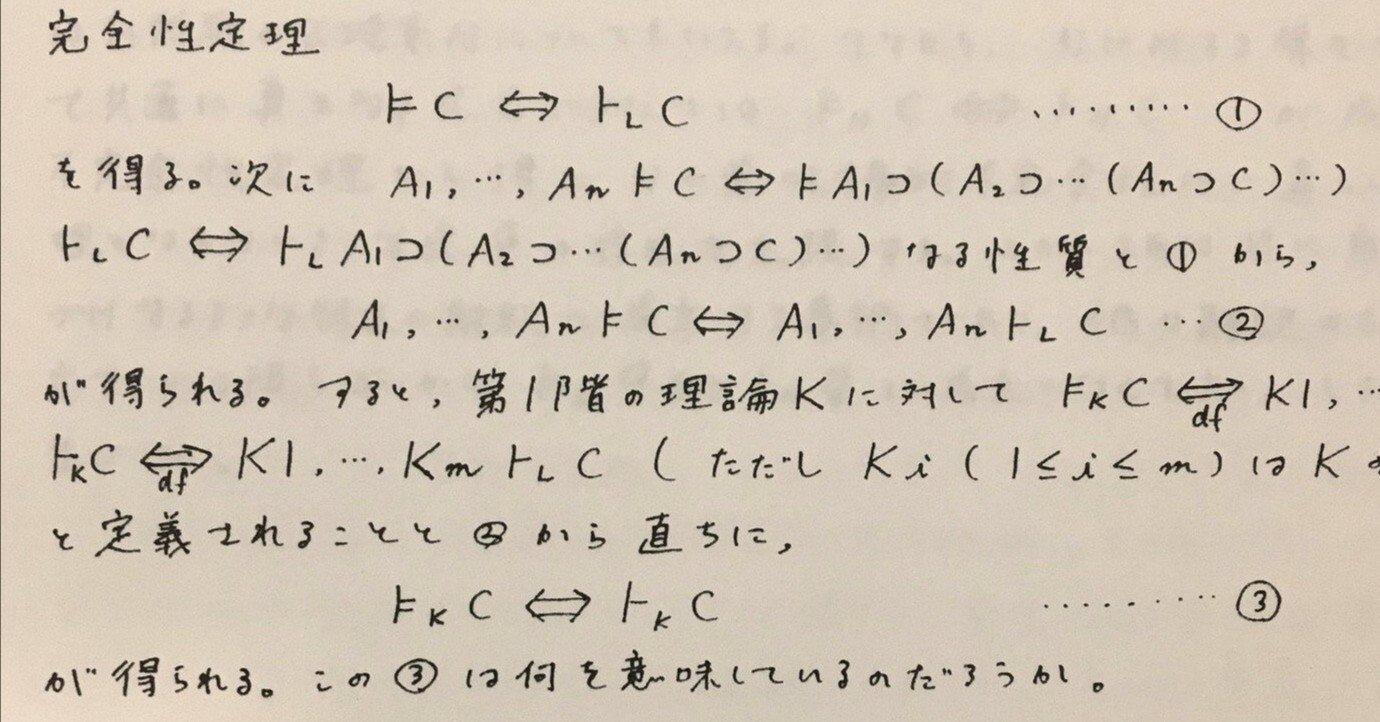 完全性定理
⊨ C ⇔ ⊢L C ……… ①
を得る。次に A1, …, An ⊨ C ⇔ ⊨ A1⊃(A2⊃…(An⊃C)…)
⊢L C ⇔ ⊢L A1⊃(A2⊃…(An⊃C)…) なる性質と①から,
A1, …, An ⊨ C ⇔ A1, …, An ⊢L C … ②
が得られる。すると, 第1階の理論Kに対して ⊨K C ⇔df K1, …
⊢K C ⇔df K1, …, Km ⊢L C (ただし Ki (1≤i≤m) は K
と定義されることと②から直ちに,
⊨K C ⇔ ⊢K C ……… ③
が得られる。この③は何を意味しているのだろうか。